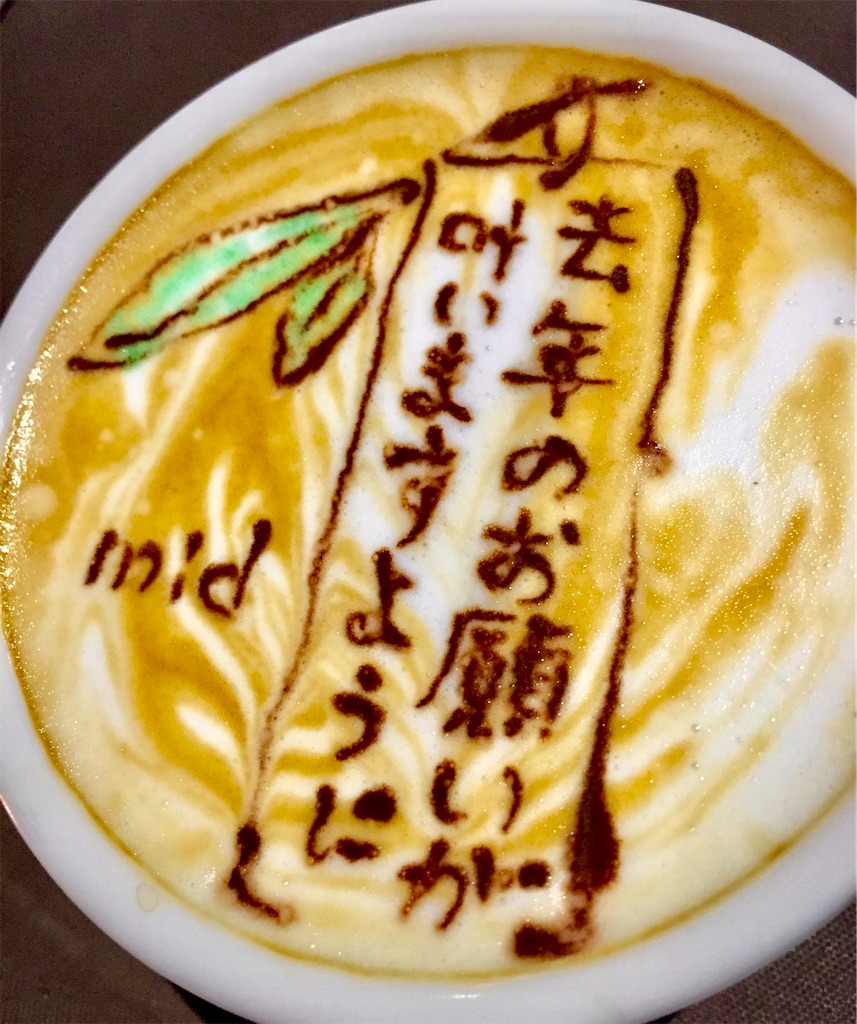 去年のお願いが
叶いますように
mid